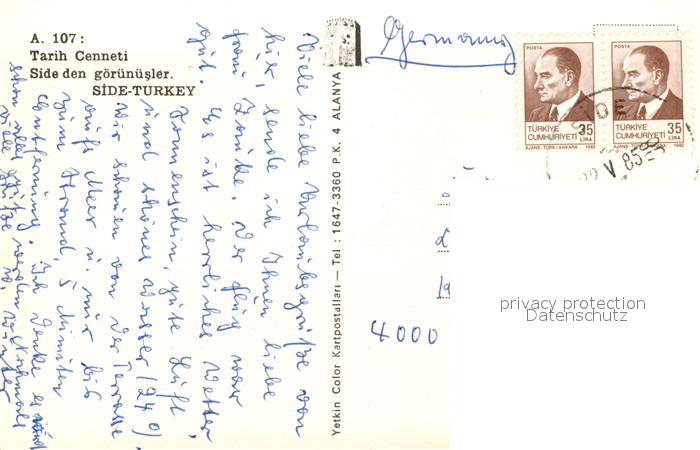 A. 107:
Tarih Cenneti
Side den görünüşler.
SİDE-TURKEY
Viele liebe Urlaubsgrüße von
hier, sende ich Ihnen liebe
Frau Zanke. Der Flug war
gut. Es ist herrliches Wetter,
Sonnenschein, gute Luft
und schönes Wasser (24°).
Wir schauen von der Terrasse
aufs Meer u. nur bis
zum Strand, 5 Minuten
Entfernung. Ich denke es
schon alles
viele Grüße
Yetkin Color Kartpostalları — Tel : 1647-3360 P.K. 4 ALANYA
Germany
POSTA
TÜRKİYE
CUMHURİYETİ
35
LİRA
AJANS-TÜRK/ANKARA 1982
POSTA
TÜRKİYE
CUMHURİYETİ
35
LİRA
AJANS-TÜRK/ANKARA 1982
SİDE
V 85
4000
privacy protection
Datenschutz